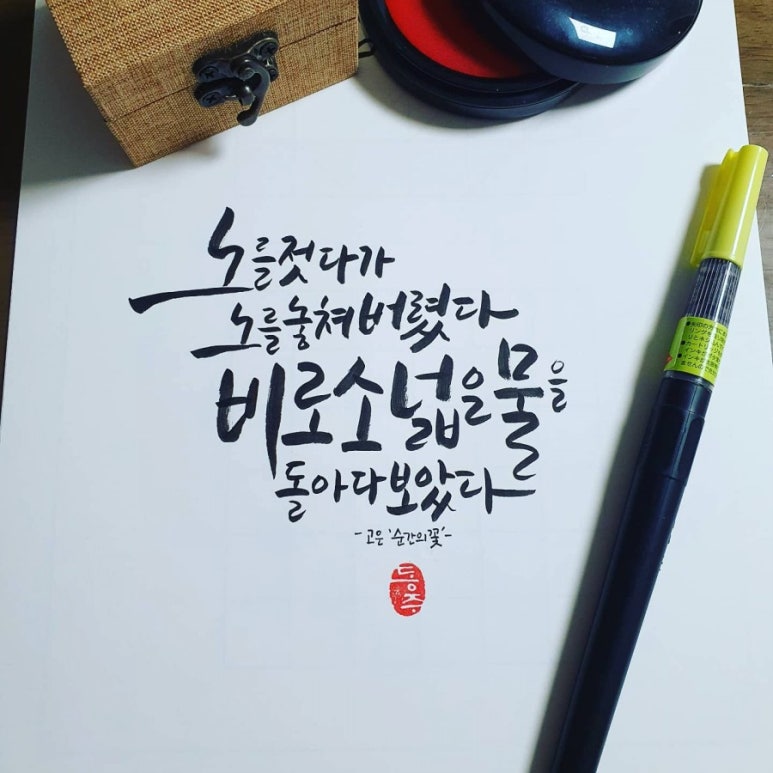 노를젓다가
노를놓쳐버렸다
비로소넓은물을
돌아다보았다
-고은 '순간의꽃'-